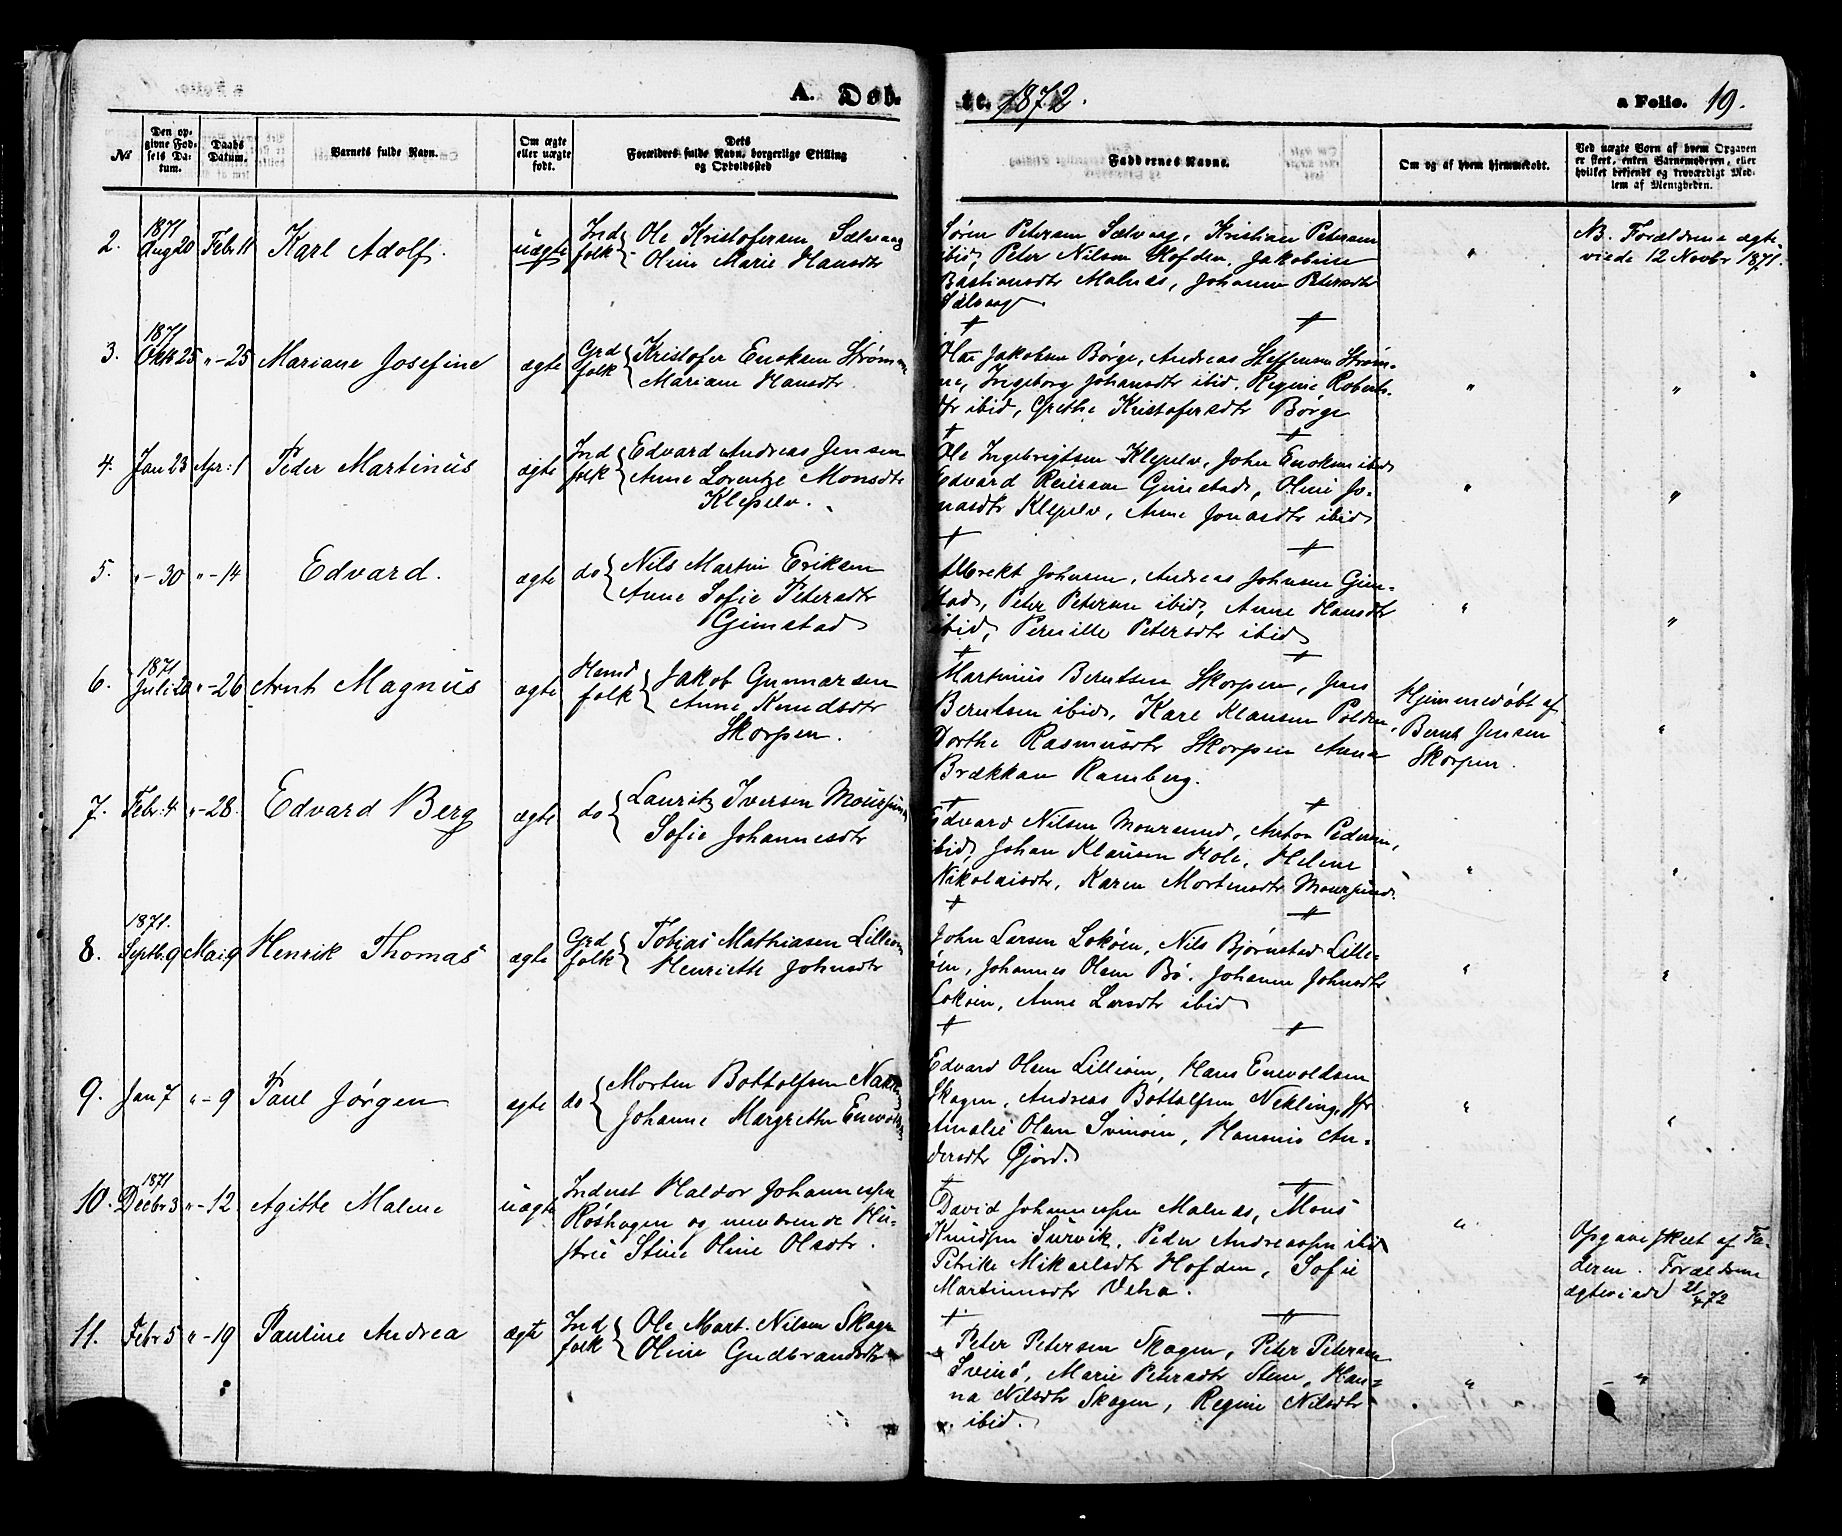 A. Døb-
te. 1872.
a Folio. 19.
No
Den op-
givne Fød-
sels Da-
tum.
Daabs
Datum.
Barnets fulde Navn.
Om ægte
eller uægte
født.
Dets
Forældres fulde Navn, borgerlige Stilling
og Opholdssted
Faddernes Navne.
Om og af hvem hjemmedøbt.
Ved uægte Børn af hvem Opgaven
er skeet, enten Barnemoderen, eller
hvilket bekjendt og troværdigt Med-
lem af Menigheden.
2. 1871 Aug 20 Febr 11 Karl Adolf. uægte Ind folk Ole Kristofersen Sælvaag
Oline Marie Hansdtr
Søren Petersen Sælvaag, Kristian Petersen
ibid, Peter Nilsen Hofden, Jakobine
Bastiansdtr Malnes, Johanne Petersdtr
Sælvaag
"
NB. Forældrene ægte-
viede 12 Novbr 1871.
3. 1871 Oktr 25 "-25 Mariane Josefine ægte Grd folk Kristofer Enoksen Strømm
Mariane Hansdtr
Olai Jakobsen Børge, Andreas Steffensen Strøm-
me, Ingeborg Johansdtr ibid, Regine Roberts-
dtr ibid, Grethe Kristofersdtr Børge
" "
4. Jan 23 Apr: 1 Peder Martinus ægte Ind folk Edvard Andreas Jensen
Anne Lorentze Monsdtr
Klepelv.
Ole Ingebrigtsen Klepelv, John Enoksen ibid
Edvard Reiersen Gimstad, Oline Jo-
nasdtr Klepelv, Anne Jonasdtr ibid
" "
5. "-30 "-14 Edvard. ægte do Nils Martin Eriksen
Anne Sofie Petersdtr
Gimstad
Albrekt Johnsen, Andreas Johnsen Gim-
stad, Peter Petersen ibid, Anne Hansdtr
ibid, Pernille Petersdtr ibid
" "
6. 1871 Juli 20 "-26 Arnt Magnus ægte Hmd folk Jakob Gunnarsen
Anne Knudsdtr
Skorpen.
Martinus Berntsen Skorpen, Jens
Berntsen ibid, Karl Klausen Polden,
Dorthe Rasmusdtr Skorpen Anna
Brækkan Ramberg.
Hjemmedøbt af
Bernt Jensen
Skorpen.
"
7. Febr. 4 "-28. Edvard Berg ægte do Lauritz Iversen Moursund
Sofie Johannesdtr
Edvard Nilsen Moursund, Anton Pedersen,
ibid, Johan Klausen Hole, Helene
Nikolaisdtr, Karen Mortensdtr Moursund.
" "
8. 1871. Septbr. 9 Mai 9 Henrik Thomas ægte Grd folk Tobias Mathiasen Lilliøen
Henriette Johnsdtr
John Larsen Lokøen, Nils Bjørnstad Lilli-
øen, Johannes Olsen Bø. Johanne Johnsdtr
Lokøen, Anne Larsdtr ibid
" "
9. Jan 7 "-9 Paul Jørgen ægte do Morten Bottolfsen
Johanne Margrethe
Edvard Olsen Lilliøen, Hans Enevoldsen
Skagen, Andreas Bottolfsen Nekling, Jfr
Amalie Olsen Svinøen, Hansine An-
dersdtr Øjord.
" "
10. 1871 Decbr 3 "-12 Agitte Malene uægte Inderst Haldor Johannessen
Røshagen og nuværende Hu-
stru Stine Oline Olsdtr.
David Johannessen Malnes, Mons
Knudsen Survik, Peder Andreassen ibid
Petrike Mikaelsdtr Hofden, Sofie
Martinusdtr Veha.
"
Opgave skeet af Fa-
deren. Forældrene
ægteviede 21/4 72
11. Febr 5 "-19 Pauline Andrea ægte Ind folk Ole Mart. Nilsen Skagen
Oline Gudbrandsdtr
Peter Petersen Skagen, Peter Petersen
Svinø, Marie Petersdtr Stene, Han-
na Nilsdtr Skagen, Regine Nilsdtr
ibid.
" "